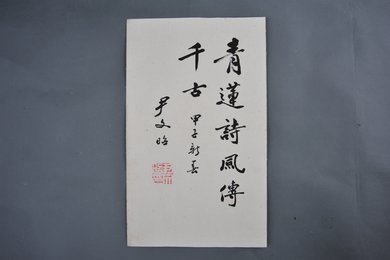 青蓮詩風傳
千古
甲子新春
尹文昭